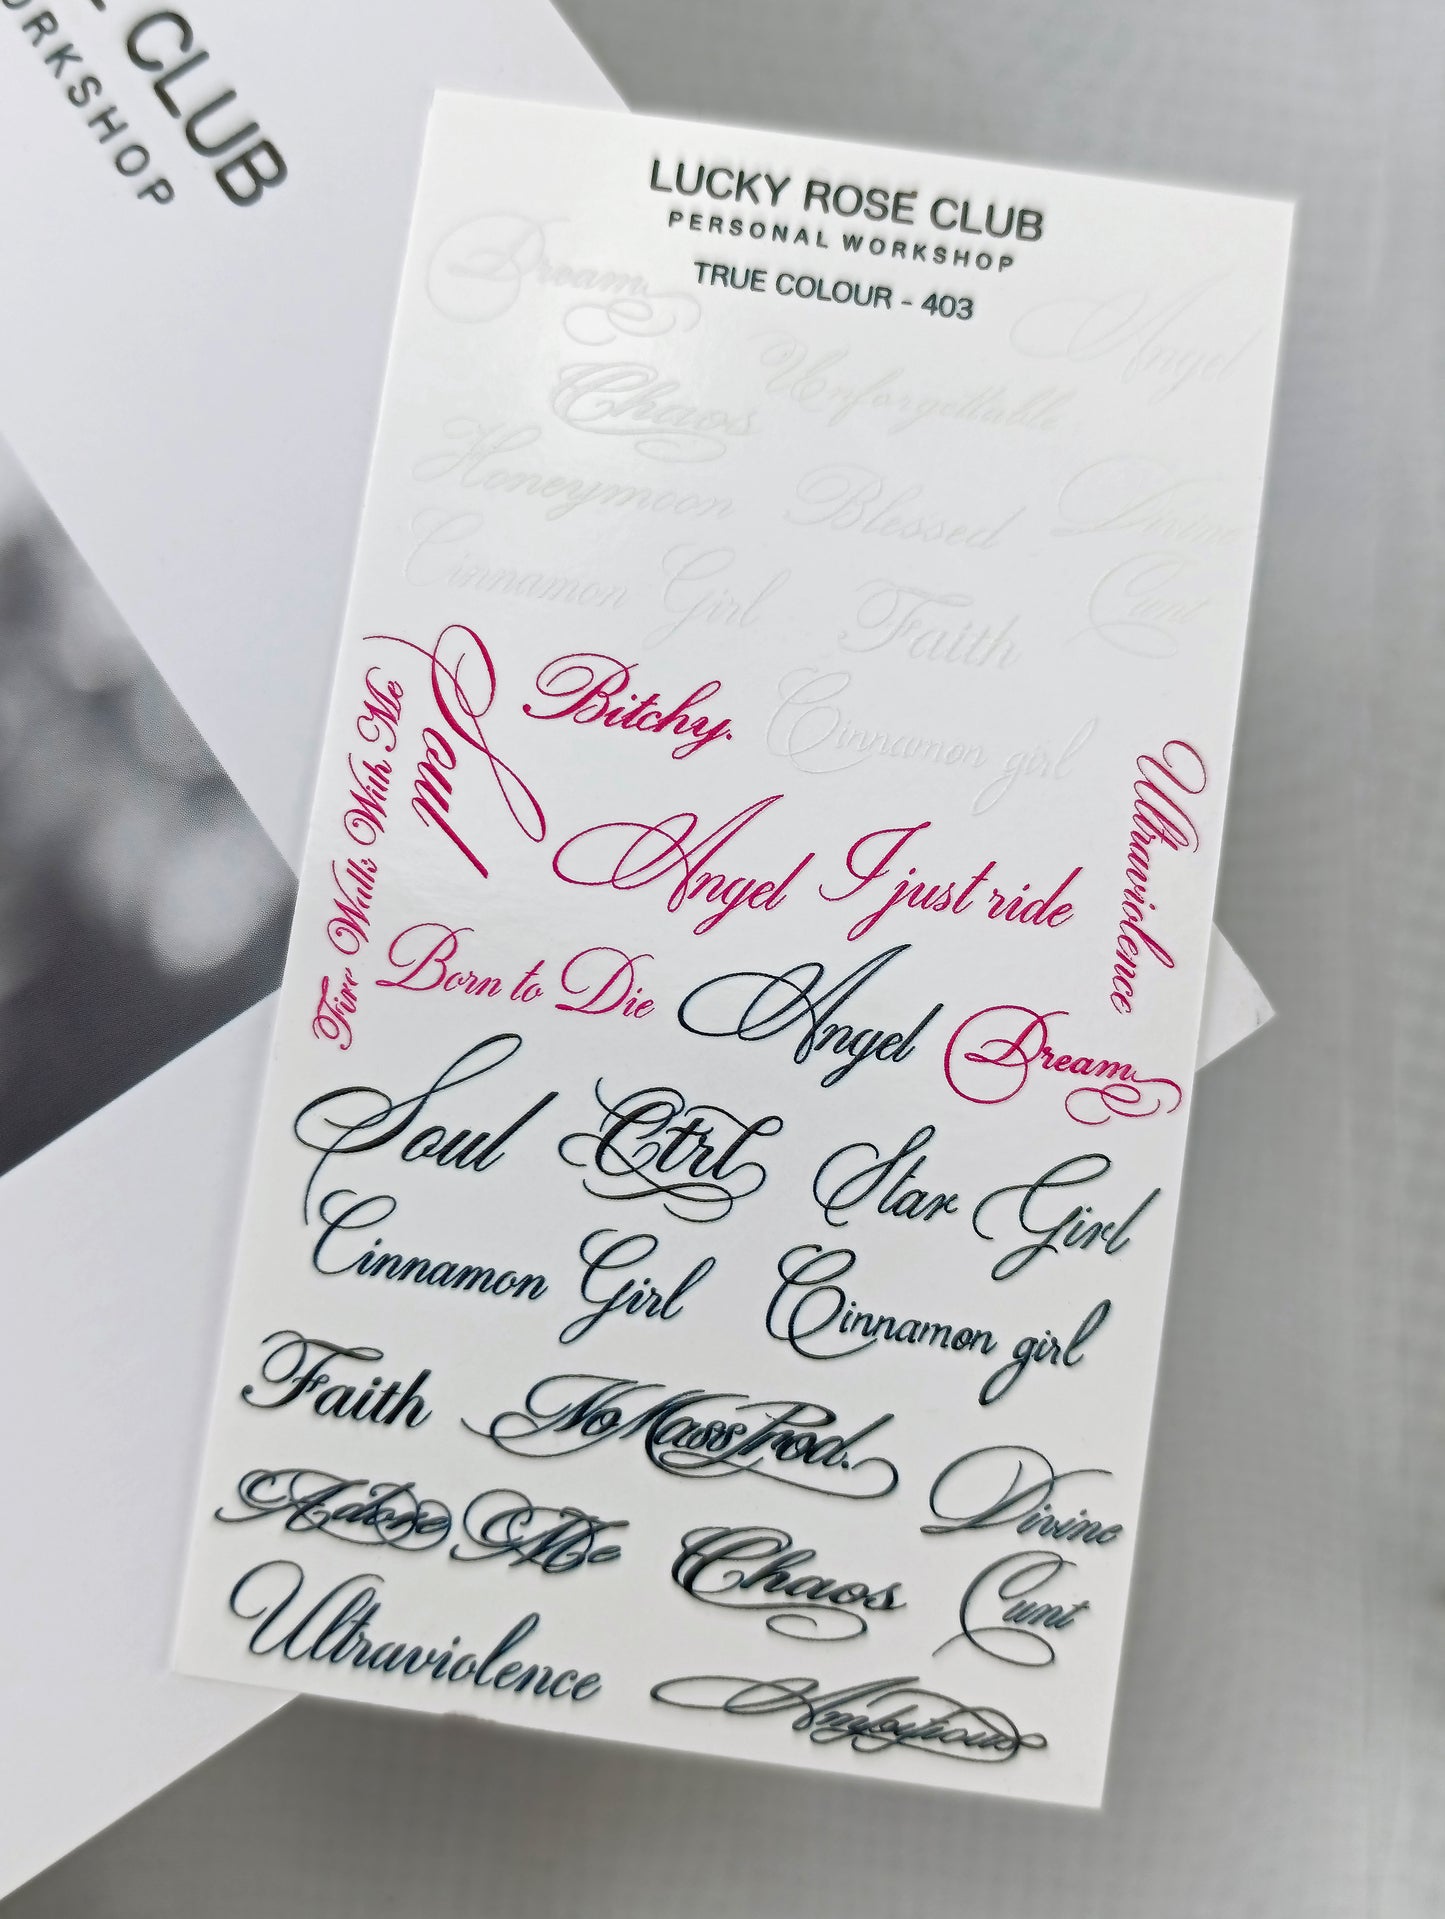 CLUB
RKSHOP
LUCKY ROSE CLUB
PERSONAL WORKSHOP
TRUE COLOUR - 403
Dream
Angel
Unforgettable
Chaos
Honeymoon
Blessed
Divine
Cunt
Cinnamon Girl
Faith
Cinnamon girl
Soul
Bitchy.
Fire Walk With Me
Ultraviolence
Angel
I just ride
Born to Die
Angel
Dream
Soul
Ctrl
Star Girl
Cinnamon Girl
Cinnamon girl
Faith
No Mass Prod.
Divine
Adore Me
Chaos
Cunt
Ultraviolence
Ambitious